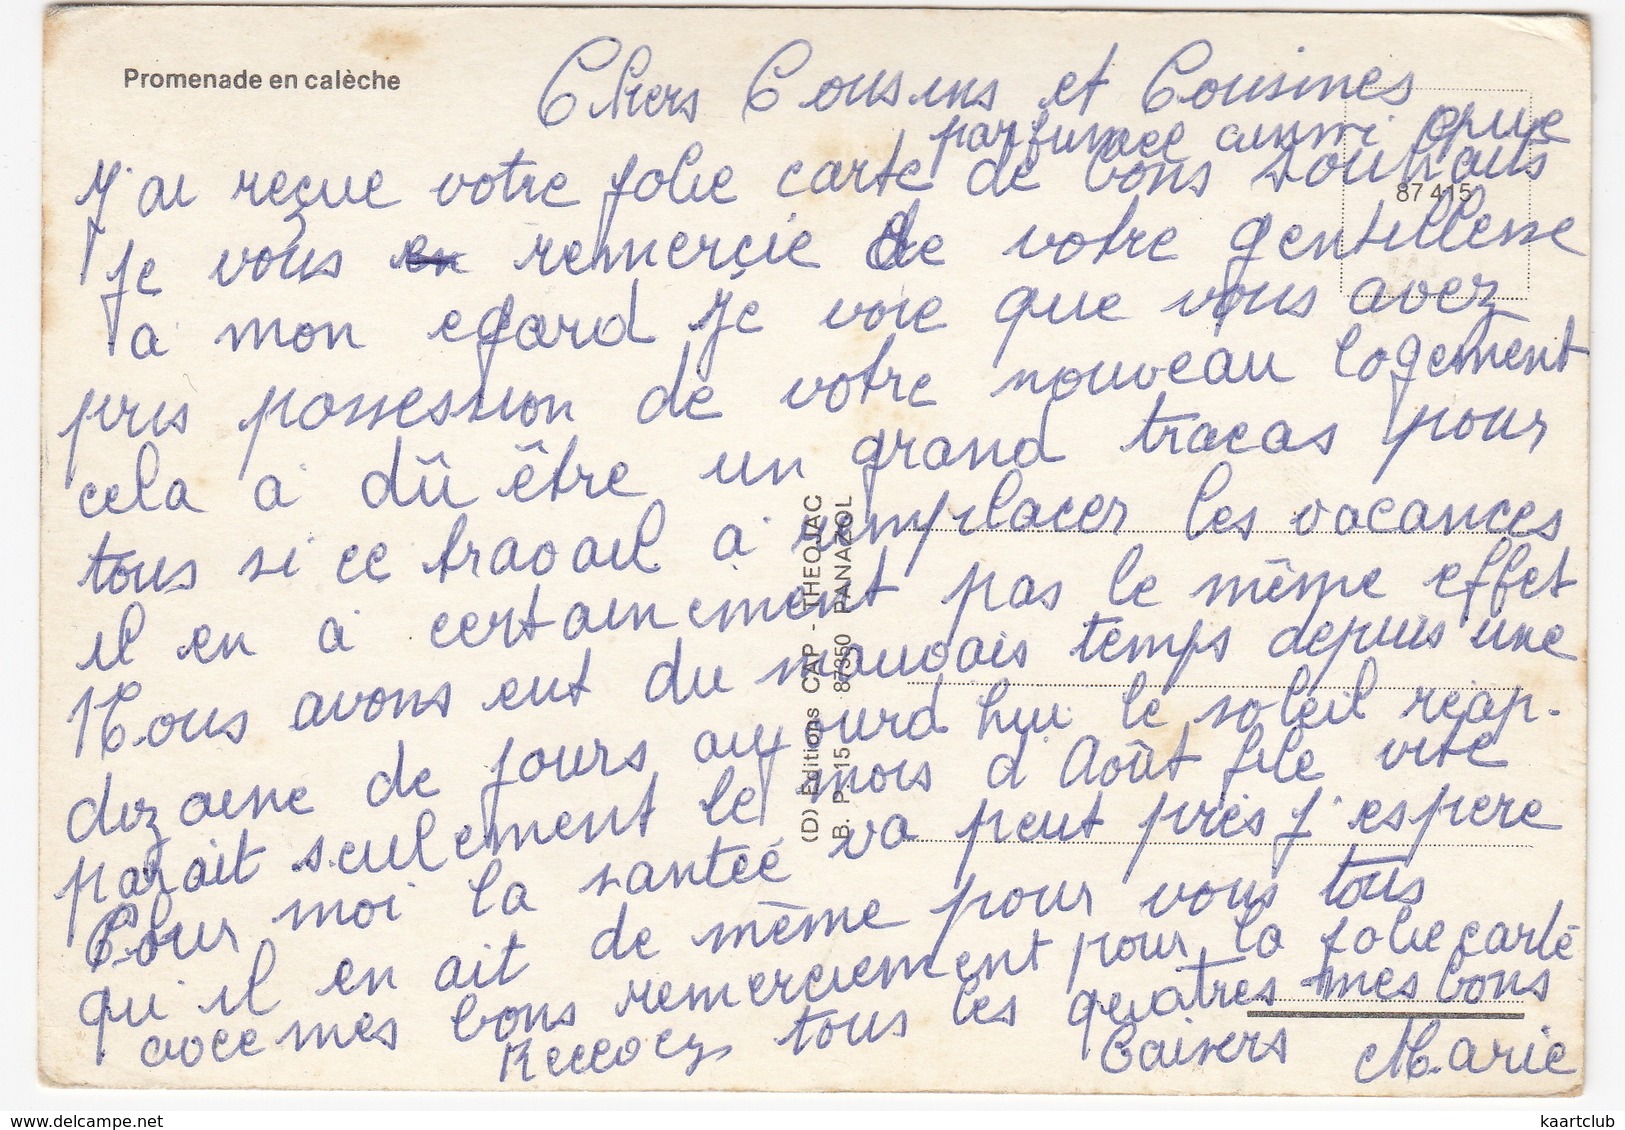 Promenade en calèche
Chers Cousins et Cousines
parfumee aussi que
J'ai reçue votre jolie carte de bons souhaits
87 415
Je vous remerçie de votre gentillesse
a mon egard Je voie que vous avez
pris possession de votre nouveau logement
cela a dû être un grand tracas pour
tous si ce travail a remplacer les vacances
il en a certainement pas le même effet
Nous avons eut du mauvais temps depuis une
dizaine de jours aujourd hui le soleil réap-
parait seulement le mois d'Août file vite
Pour moi la santeé va peut près j'espère
qu'il en ait de même pour vous tous
avec mes bons remerciement pour la jolie carte
Recevez tous les quatres mes bons
Baisers Marie
(D) Editions CAP - THEOJAC
B. P. 15 87350 PANAZOL
www.delcampe.net
kaartclub